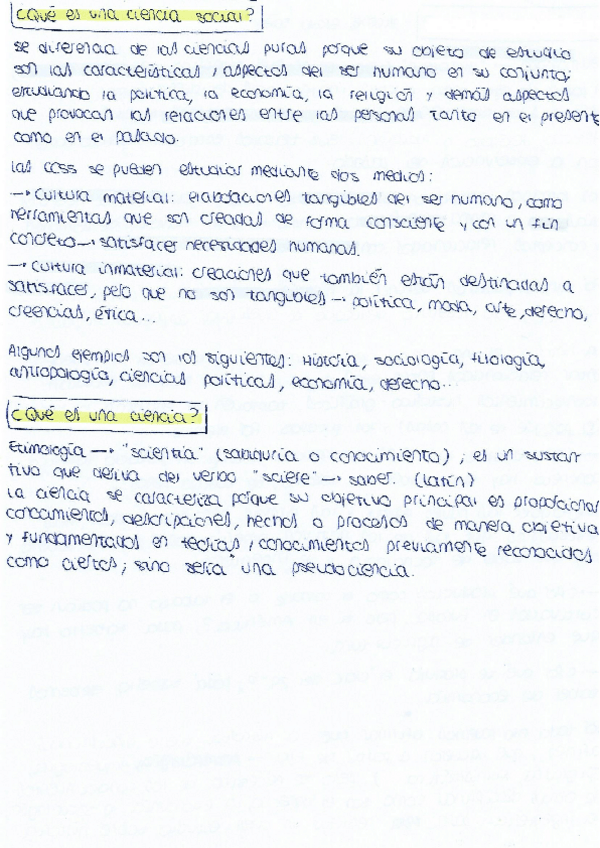 ¿Qué es una ciencia social?
se diferencia de las ciencias puras porque su objeto de estudio
son las características / aspectos del ser humano en su conjunto;
estudiando la política, la economía, la religión y demás aspectos
que provocan las relaciones entre las personas tanto en el presente
como en el pasado.
Las CCSS se pueden estudiar mediante dos medios:
→ Cultura material: elaboraciones tangibles del ser humano, como
herramientas que son creadas de forma consciente y con un fin
concreto → satisfacer necesidades humanas.
→ Cultura inmaterial: creaciones que también están destinadas a
satisfacer, pero que no son tangibles → política, moda, arte, derecho,
creencias, ética...
Algunos ejemplos son los siguientes: Historia, sociología, filología,
antropología, ciencias políticas, economía, derecho...
¿Qué es una ciencia?
Etimología → "scientia" (sabiduría o conocimiento); es un sustan
tivo que deriva del verbo "sciere" → saber. (latín)
La ciencia se caracteriza porque su objetivo principal es proporcionar
conocimientos, descripciones, hechos o procesos de manera objetiva
y fundamentados en teorías / conocimientos previamente reconocidos
como ciertos; sino sería una pseudociencia.